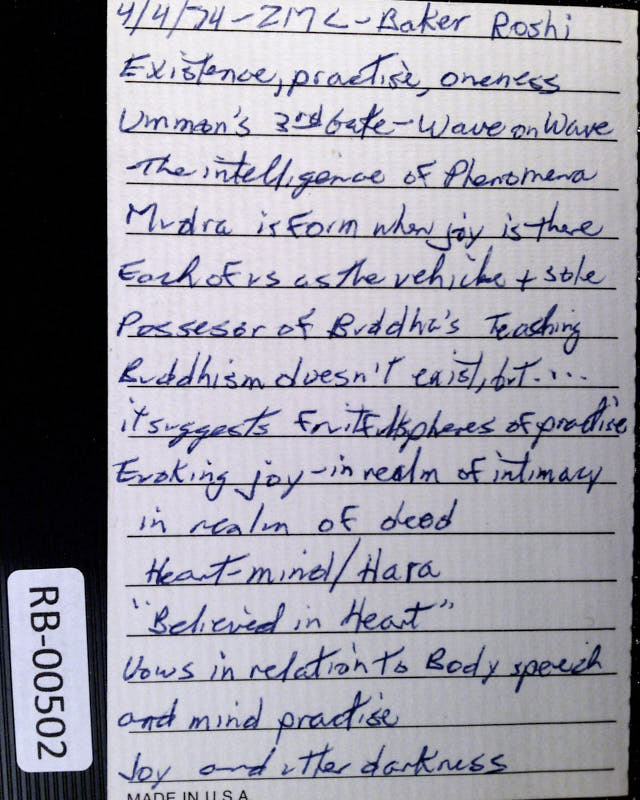 4/4/74-ZMC-Baker Roshi
Existence, practise, oneness
Ummon's 3rd Gate-Wave on Wave
The intelligence of Phenomena
Mudra is Form when joy is there
Each of us as the vehicle + sole
Possesor of Buddha's Teaching
Buddhism doesn't exist, but....
it suggests fruitful spheres of practise
Evoking joy-in realm of intimacy
in realm of dead
Heart-mind/Hara
"Believed in Heart"
Vows in relation to Body speech
and mind practise
Joy and utter darkness
MADE IN U.S.A.
RB-00502